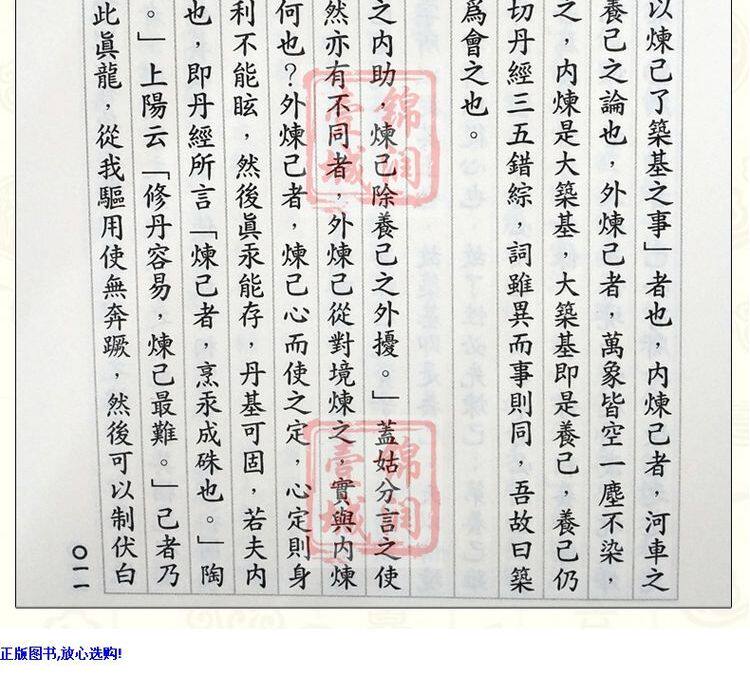 以煉己了築基之事」者也，內煉己者，河車之
養己之論也，外煉己者，萬象皆空一塵不染，
之，內煉是大築基，大築基即是養己，養己仍
切丹經三五錯綜，詞雖異而事則同，吾故曰築
爲會之也。
之內助，煉己除養己之外擾。」蓋姑分言之使
然亦有不同者，外煉己從對境煉之，實與內煉
何也？外煉己者，煉己心而使之定，心定則身
利不能眩，然後眞汞能存，丹基可固，若夫內
也，即丹經所言「煉己者，烹汞成硃也。」陶
。」上陽云「修丹容易，煉己最難。」己者乃
此眞龍，從我驅用使無奔蹶，然後可以制伏白
〇一一
錦潤
壹城
錦潤
壹城
正版图书,放心选购!